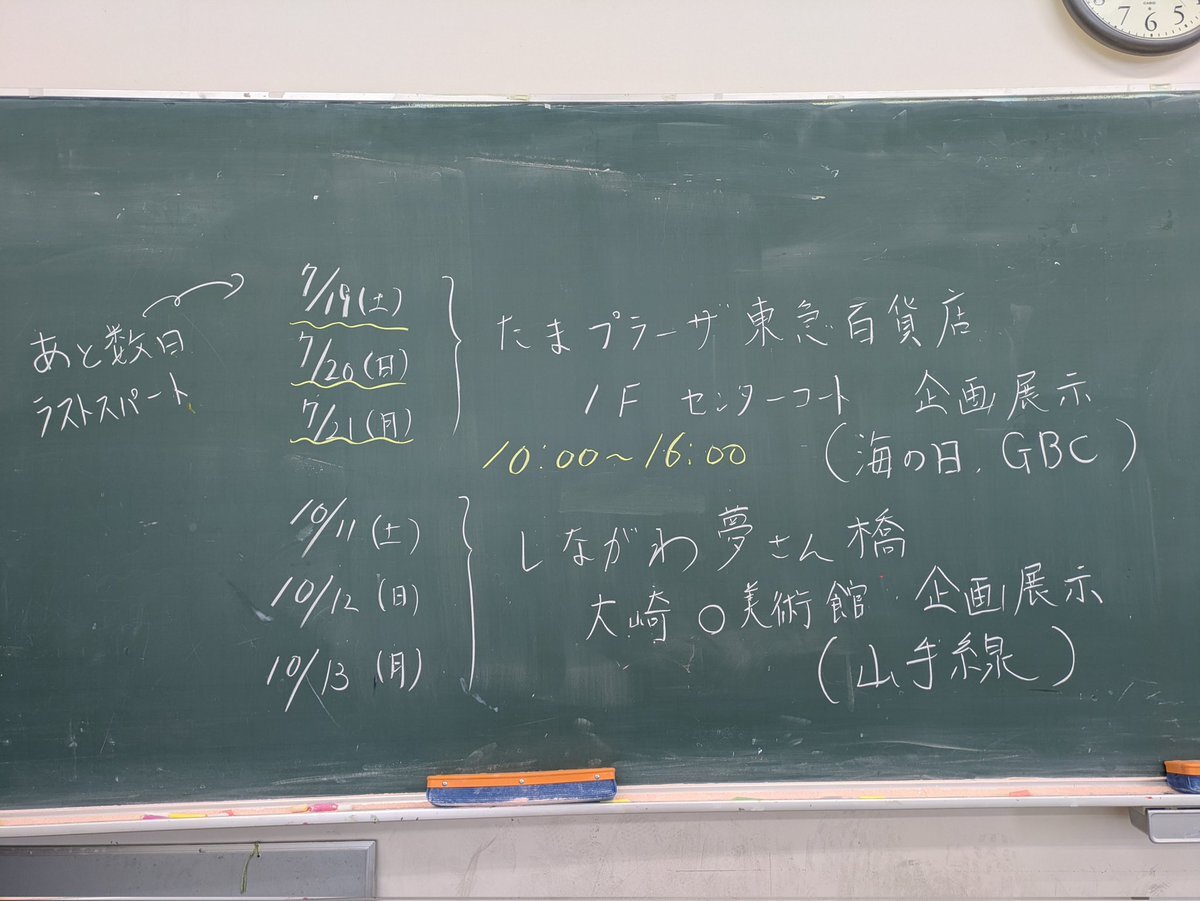 CASIO
8 7 6 5
あと数日
ラストスパート
7/19(土)
7/20(日)
7/21(月)
たまプラーザ 東急百貨店
1F センターコート 企画展示
10:00~16:00 (海の日、GBC)
10/11(土)
10/12(日)
10/13(月)
しながわ夢さん橋
大崎 O美術館 企画展示
(山手線)